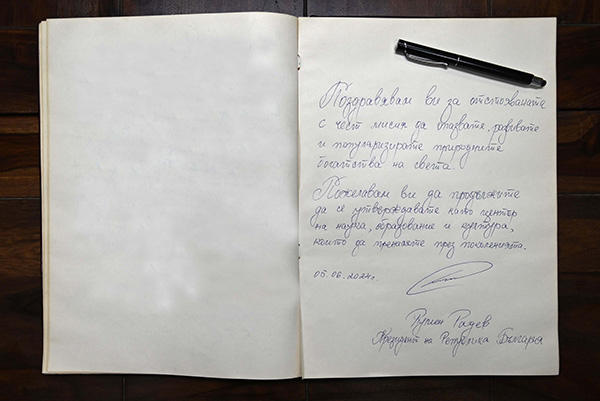 Поздравявам ви за отстояваната
с чест мисия да опазвате, развивате
и популяризирате природните
богатства на света.
Пожелавам ви да продължите
да се утвърждавате като център
на наука, образование и култура,
които да пренасяте през поколенията.
05.06.2024г.
Румен Радев
Президент на Република България